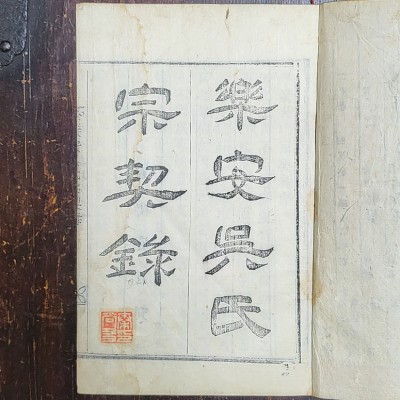 樂安吳氏
宗契錄